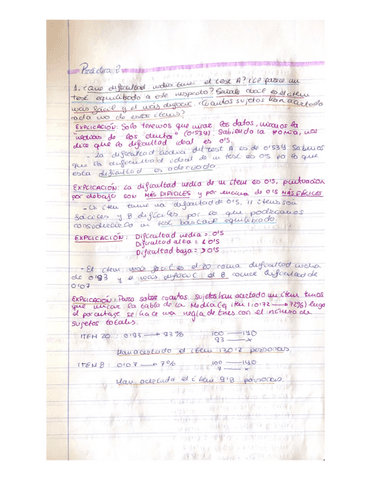 Práctica 2
1. ¿Que dificultad media tiene el test A? ¿Es un
test equilibrado a este respecto? Señala cual es el ítem
más fácil y el más difícil. ¿Cuántos sujetos han acertado
cada uno de estos ítems?
EXPLICACIÓN: Solo tenemos que mirar los datos, miramos la
medias de los (0'534) Sabiendo la nos
dice que la dificultad ideal es 0'5
- La dificultad media del test A es de 0'534 Sabemos
que la dificultad ideal de un test es 0'5 por lo que
esta dificultad es adecuada
EXPLICACIÓN: La dificultad media de un ítem es 0'5, puntuación
por debajo son MÁS DIFÍCILES y por encima de 0'5 MÁS FÁCIL
- ítem tiene una dificultad de 0'5, 11 ítems son
fáciles y 8 difíciles por lo que podríamos
considerarlo un test bastante equilibrado.
EXPLICACIÓN: Dificultad media = 0'5
Dificultad alta = < 0'5
Dificultad baja = > 0'5
- El ítem más fácil es el 20 con una dificultad media
de 0'93 y el más difícil el 8 con una dificultad de
0'07
EXPLICACIÓN: Para saber cuantos sujetos han acertado un ítem tenemos
que mirar la tabla de la Media (ej ítem 1 0'73 → 73%) luego
el porcentaje se hace una regla de tres con el número de
sujetos totales.
ITEM 20: 0'93 → 93% 100 — 140
93 — x
Han acertado el ítem 130'2 personas.
ITEM 8: 0'07 → 7% 100 — 140
7 — x
Han acertado el ítem 9'8 personas.